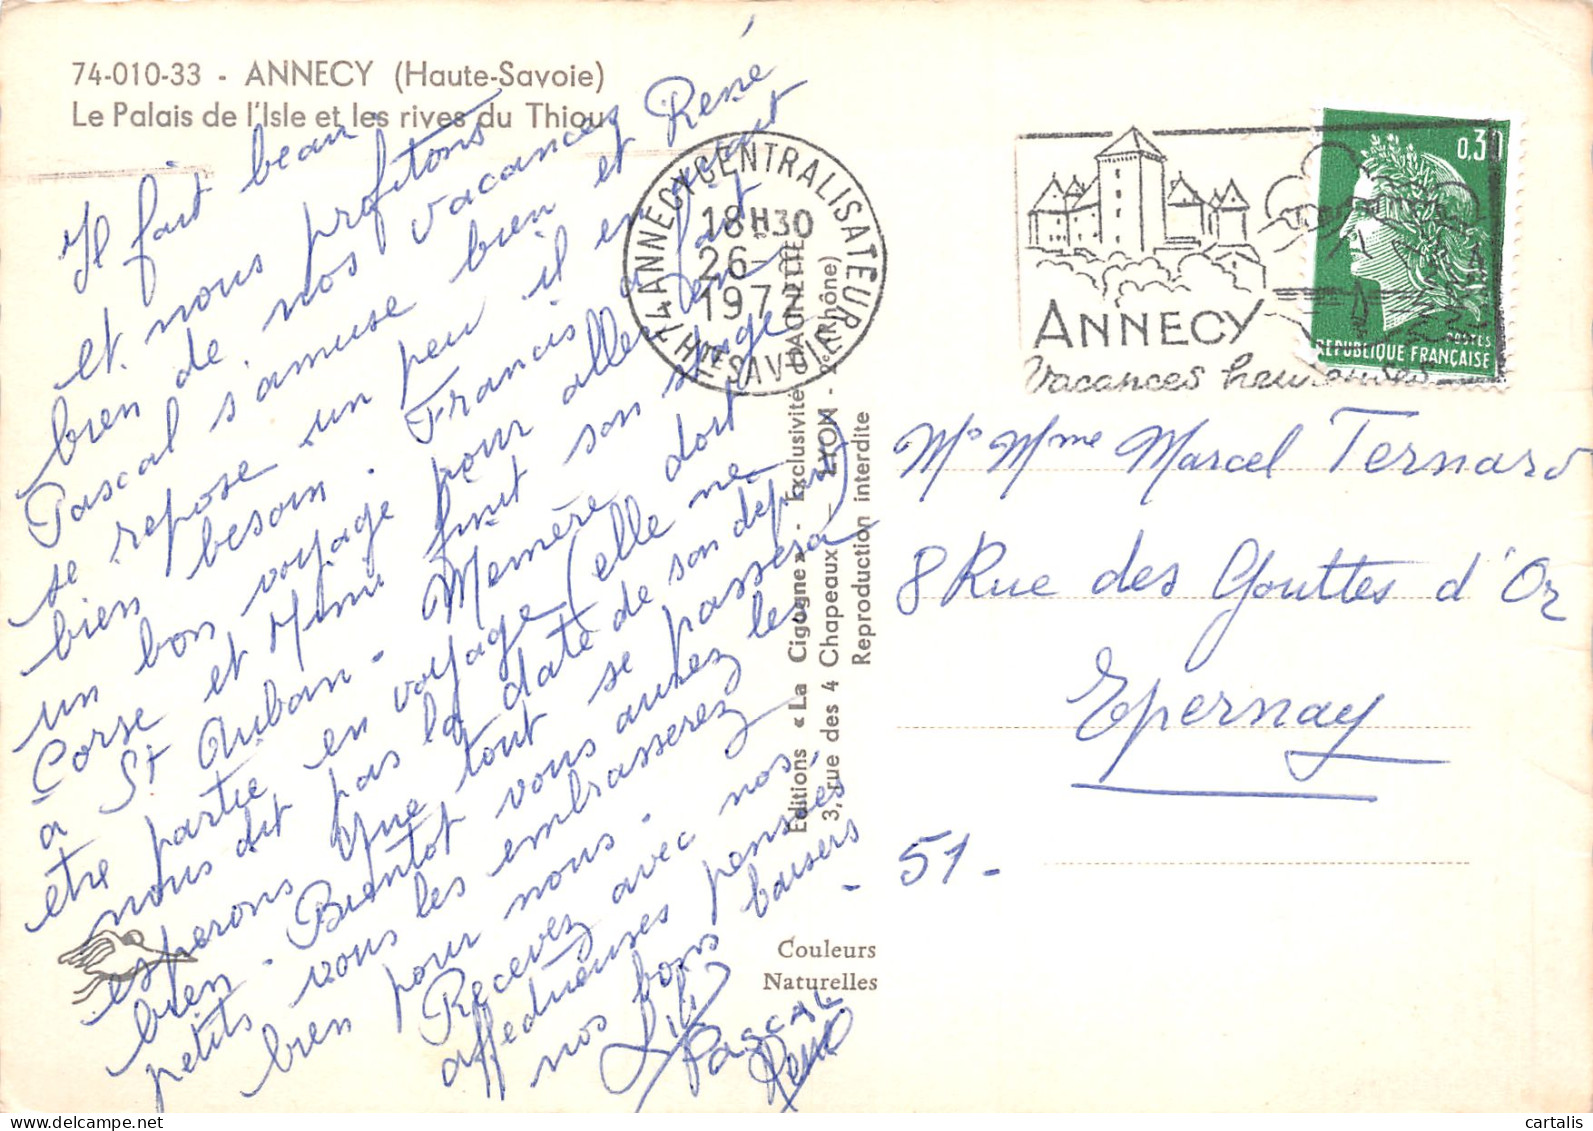 74-010-33 - ANNECY (Haute-Savoie)
Le Palais de l'Isle et les rives du Thiou
Il fait beau
et nous profitons
bien de nos vacances
Pascal s'amuse bien et René
se repose un peu il en avait
bien besoin. Francis a fait
un bon voyage pour aller en
Corse et Mimi finit son stage
à St Auban. Memère doit
être partie en voyage (elle ne
nous dit pas la date de son départ)
espérons que tout se passera
bien. Bientôt vous aurez les
petits vous les embrasserez
bien pour nous.
Recevez avec nos
affectueuses pensées
nos bons baisers
Lili
PASCAL
René
74 ANNECY CENTRALISATEUR
18H30
26-
1972
HTE SAVOIE
ANNECY
Vacances heureuses
0,30
POSTES
REPUBLIQUE FRANÇAISE
Mr Mme Marcel Ternard
8 Rue des Gouttes d'Or
Epernay
- 51 -
Editions « La Cigogne » - Exclusivité DAONETTE
3, rue des 4 Chapeaux - LYON - 2e (Rhône)
Reproduction interdite
Couleurs
Naturelles
cartalis